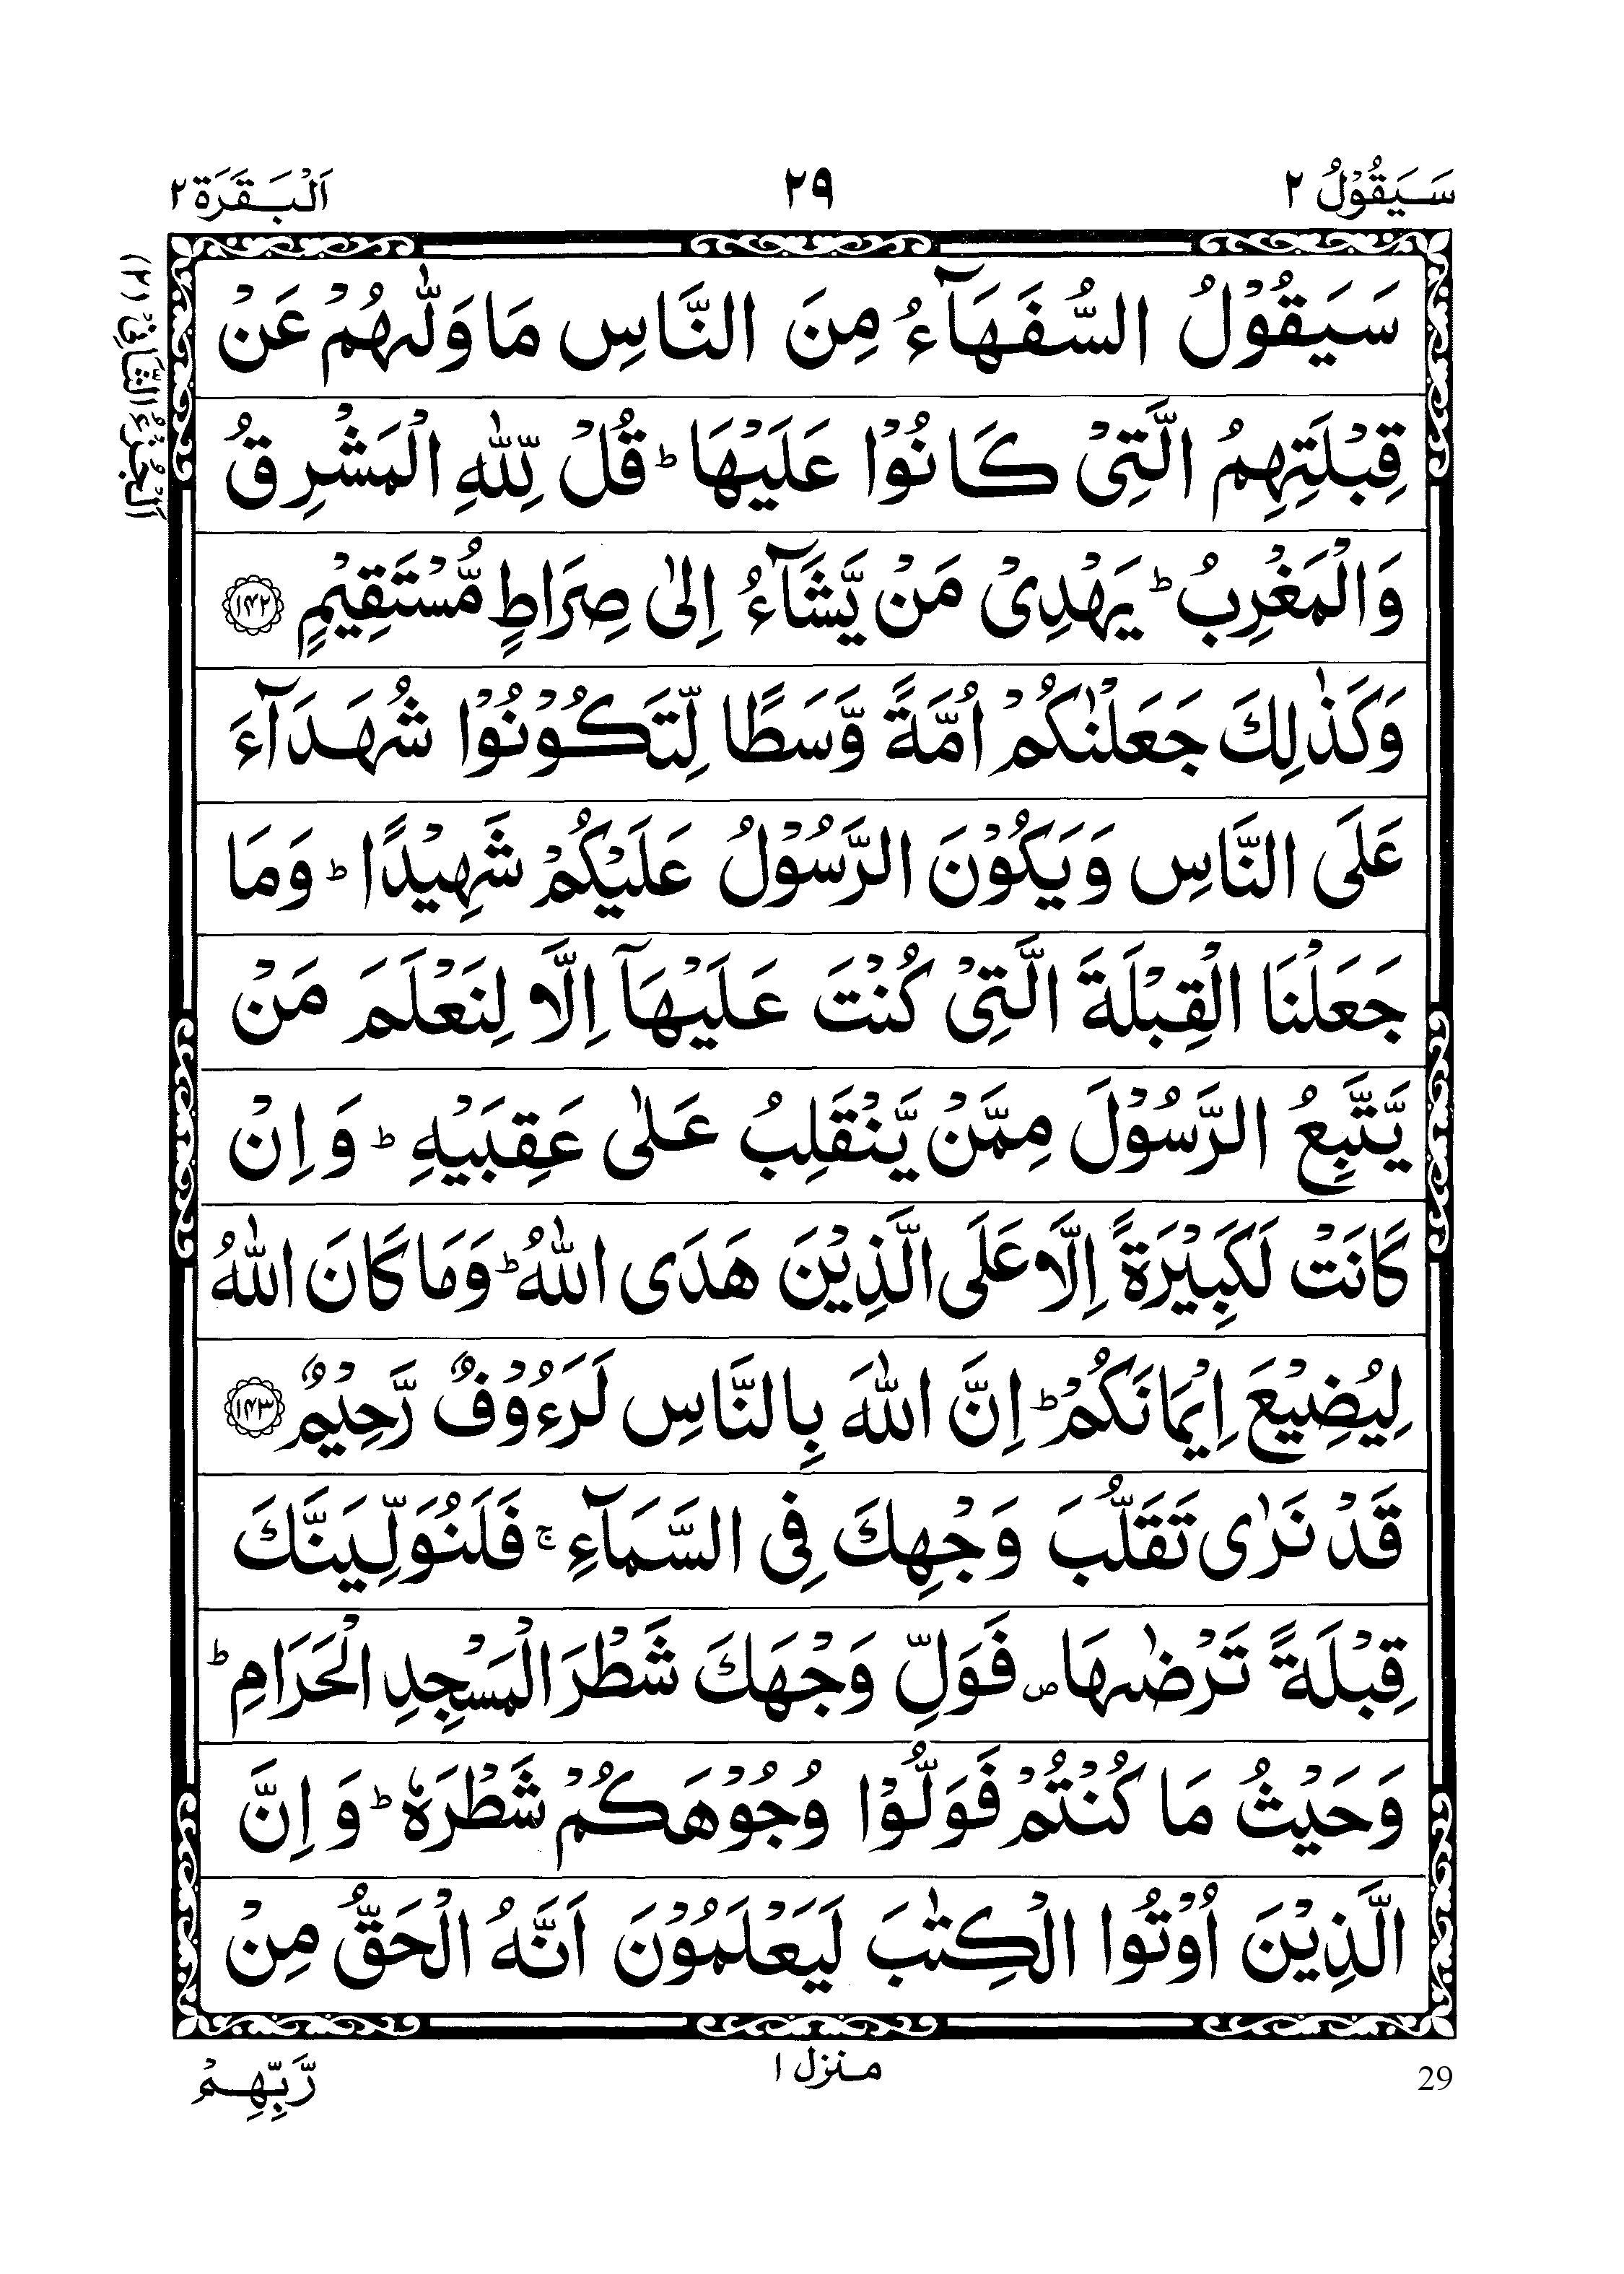 سَيَقُوْلُ ٢
٢٩
اَلْبَقَرَة ٢
اَلْجُزْءُ الثَّانِيْ (٢)
سَيَقُوْلُ السُّفَهَآءُ مِنَ النَّاسِ مَا وَلّٰىهُمْ عَنْ
قِبْلَتِهِمُ الَّتِيْ كَانُوْا عَلَيْهَا ؕ قُلْ لِّلّٰهِ الْمَشْرِقُ
وَالْمَغْرِبُ ؕ يَهْدِيْ مَنْ يَّشَآءُ اِلٰى صِرَاطٍ مُّسْتَقِيْمٍ ﴿١٤٢﴾
وَكَذٰلِكَ جَعَلْنٰكُمْ اُمَّةً وَّسَطًا لِّتَكُوْنُوْا شُهَدَآءَ
عَلَى النَّاسِ وَيَكُوْنَ الرَّسُوْلُ عَلَيْكُمْ شَهِيْدًا ؕ وَمَا
جَعَلْنَا الْقِبْلَةَ الَّتِيْ كُنْتَ عَلَيْهَآ اِلَّا لِنَعْلَمَ مَنْ
يَّتَّبِعُ الرَّسُوْلَ مِمَّنْ يَّنْقَلِبُ عَلٰى عَقِبَيْهِ ؕ وَاِنْ
كَانَتْ لَكَبِيْرَةً اِلَّا عَلَى الَّذِيْنَ هَدَى اللّٰهُ ؕ وَمَا كَانَ اللّٰهُ
لِيُضِيْعَ اِيْمَانَكُمْ ؕ اِنَّ اللّٰهَ بِالنَّاسِ لَرَءُوْفٌ رَّحِيْمٌ ﴿١٤٣﴾
قَدْ نَرٰى تَقَلُّبَ وَجْهِكَ فِى السَّمَآءِ ۚ فَلَنُوَلِّيَنَّكَ
قِبْلَةً تَرْضٰىهَا ۪ فَوَلِّ وَجْهَكَ شَطْرَ الْمَسْجِدِ الْحَرَامِ ؕ
وَحَيْثُ مَا كُنْتُمْ فَوَلُّوْا وُجُوْهَكُمْ شَطْرَهٗ ؕ وَاِنَّ
الَّذِيْنَ اُوْتُوا الْكِتٰبَ لَيَعْلَمُوْنَ اَنَّهُ الْحَقُّ مِنْ
29
منزل ١
رَّبِّهِمْ